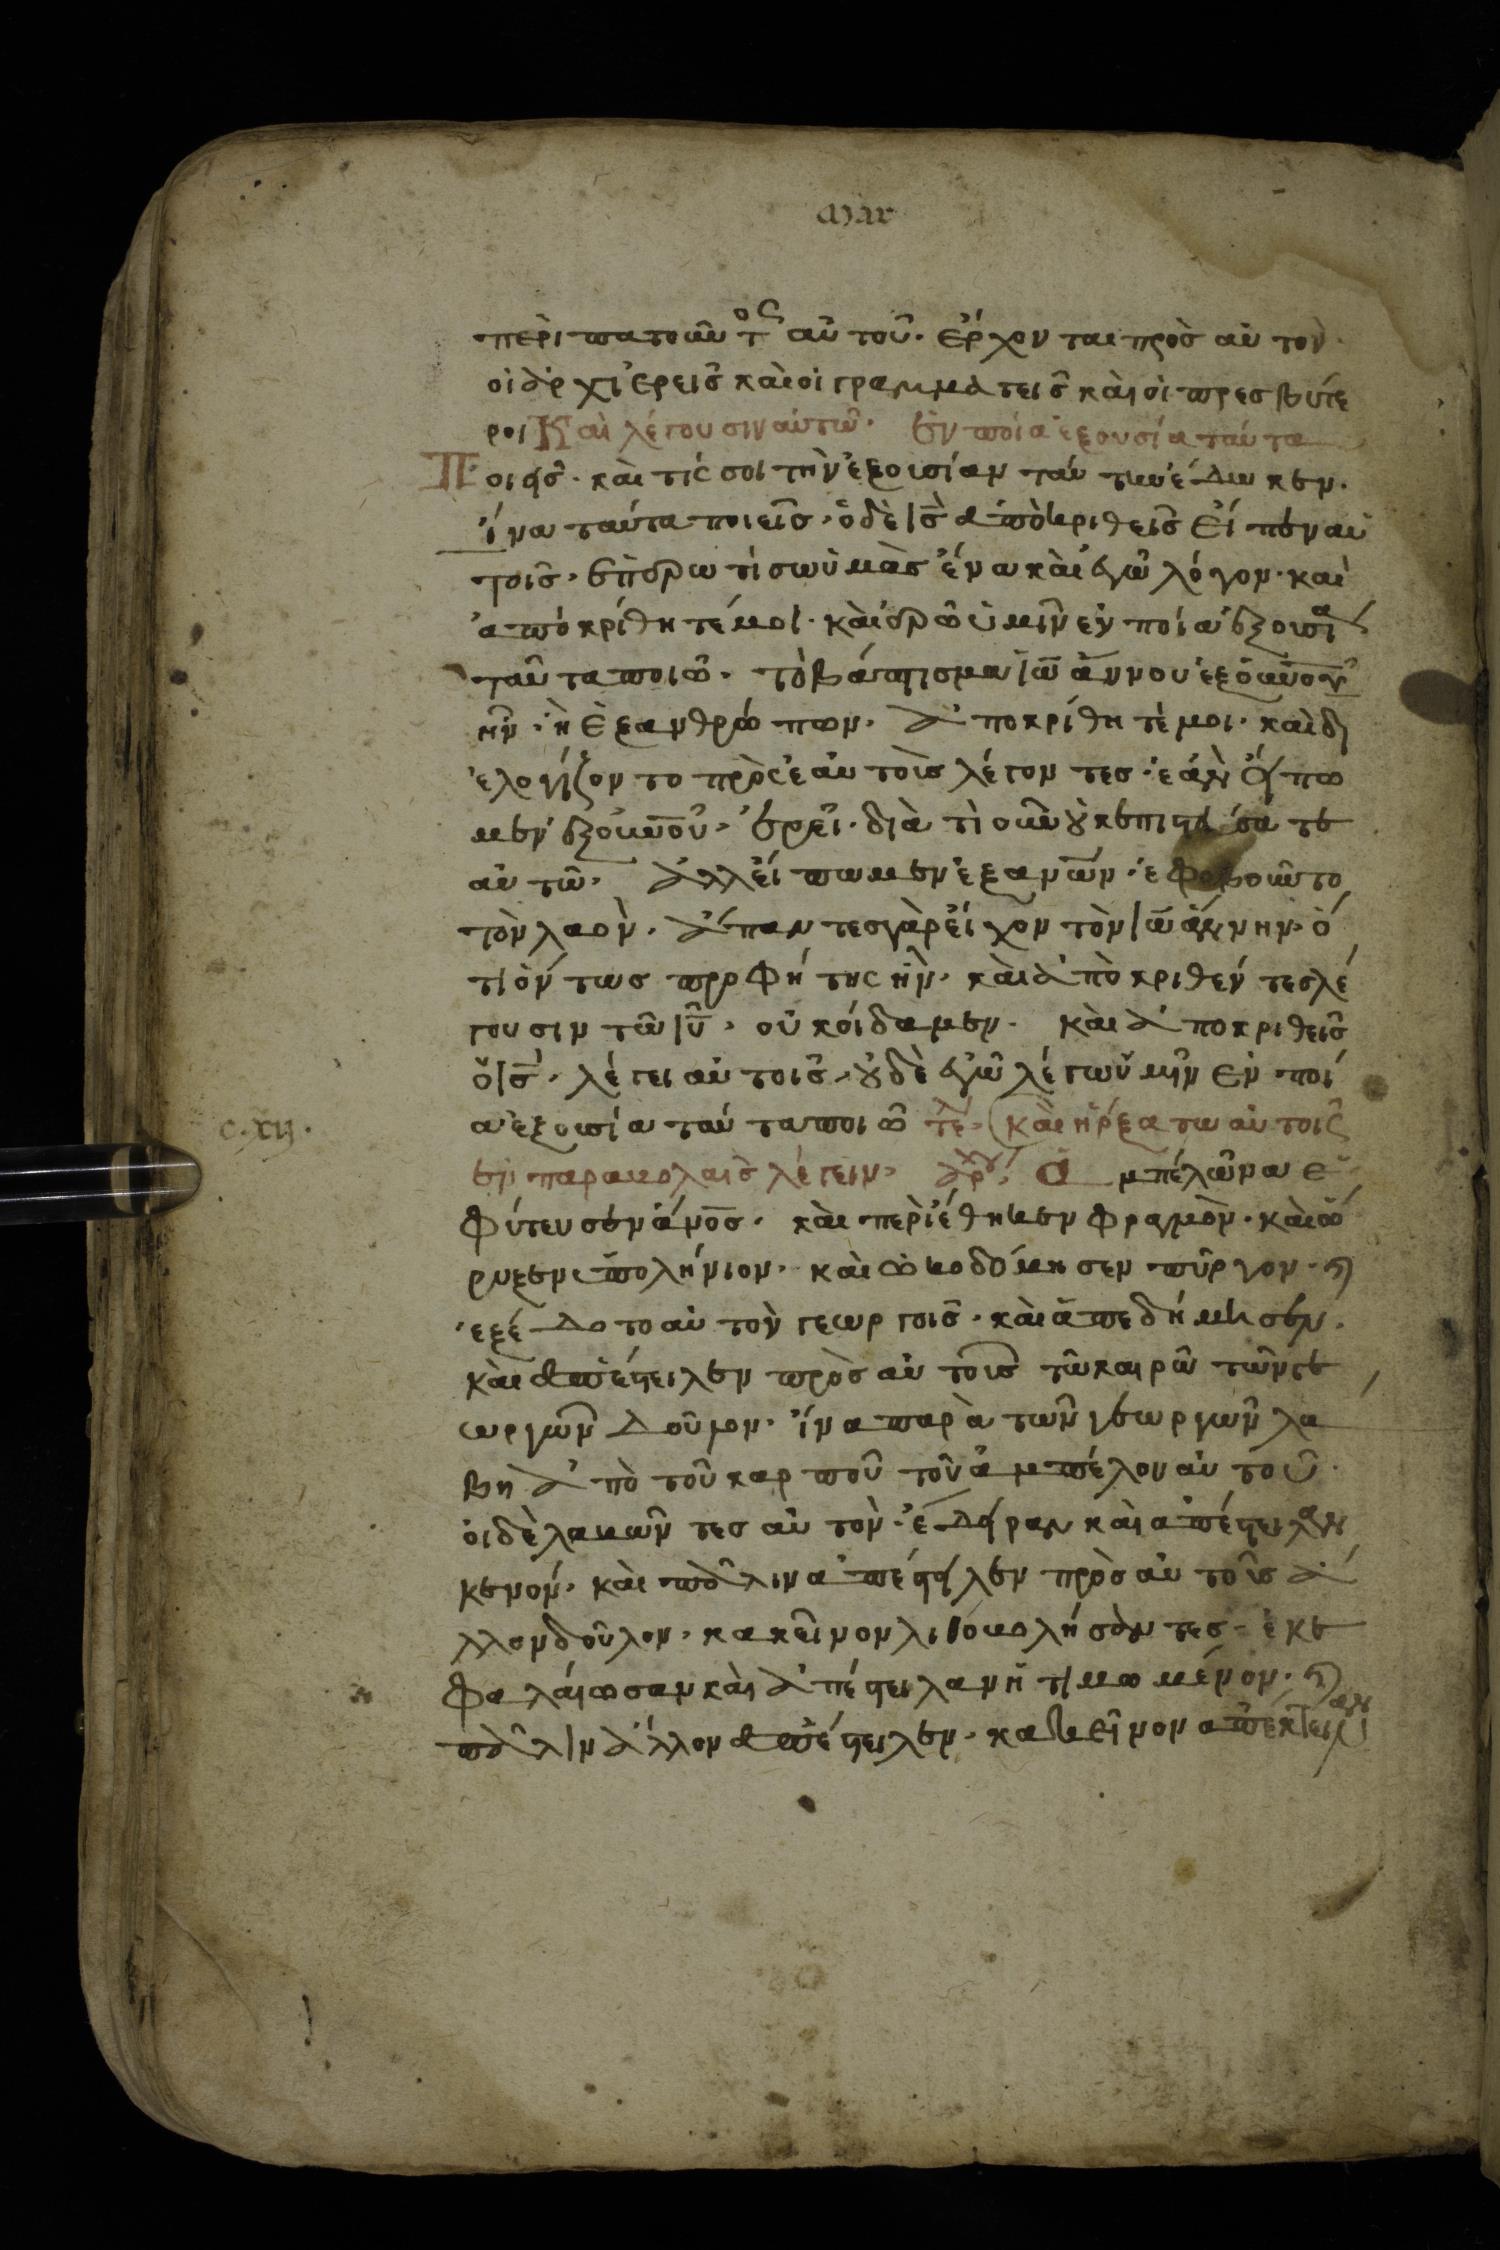 Mar
περιπατοῦντ͂ος αὐτοῦ· ἔρχονται πρὸς αὐτὸν·
οἱ ἀρχιερεῖς καὶ οἱ γραμματεῖς καὶ οἱ πρεσβύτε
ροι Καὶ λέγουσιν αὐτῶ· ἐν ποία ἐξουσία ταύτα
Ποιῆς· καὶ τίς σοι τὴν ἐξουσίαν ταύτην ἔδωκεν·
ἵνα ταύτα ποιεῖς· ὁ δὲ ις̅ ἀποκριθεὶς εἶπεν αὐ
τοῖς· ἐπερωτίσω ὑμᾶς ἕνα καὶ ἐγὼ λόγον· καὶ
ἀποκρίθητέ μοι· καὶ ἐρῶ ὑμῖν ἐν ποία ἐξουσία
ταῦτα ποιῶ· τὸ βάπτισμα ἰωάννου ἐξ οὐνοῦ
ἦν· ἢ ἐξ ἀνθρώπων· ἀποκρίθητέ μοι· καὶ δι
ελογίζοντο πρὸς ἑαυτοὺς λέγοντες· ἐὰν εἴπω
μεν ἐξ οὐνοῦ· ἐρεῖ· διὰ τί οὖν οὐκ ἐπιστεύσατε
αὐτῶ· ἀλλ εἴπωμεν ἐξ ανῶν· ἐφοβοῦντο
τὸν λαὸν· ἅπαντες γὰρ εἶχον τὸν ἰωάννην· ὅ
τι ὄντως προφήτης ἦν· καὶ ἀποκριθέντες λέ
γουσιν τῶ ιυ̅· οὐκ οίδαμεν· καὶ ἀποκριθεὶς
ὁ ις̅· λέγει αὐτοῖς· οὐδὲ ἐγὼ λέγω ὑμῖν ἐν ποί
α ἐξουσία ταύτα ποιῶ τε· (καὶ ἤρξατω αὐτοῖς
c. xij.
ἐν παραβολαῖς λέγειν· ἀρχ· Ἀμπελῶνα ἐ
φύτευσεν ἄνος· καὶ περιέθηκεν φραγμὸν· καὶ ὤ
ρυξεν ὑπολήνιον· καὶ ὠκοδόμησεν πῦργον· κ
ἐξέδοτο αὐτὸν γεωργοῖς· καὶ ἀπεδήμησεν·
καὶ ἀπέστειλεν πρὸς αὐτοὺς τῶ καιρῶ τῶν γε
ωργῶν δοῦλον· ἵνα παρὰ τῶν γεωργῶν λα
βη ἀπὸ τοῦ καρποῦ τοῦ ἀμπέλον αὐτοῦ·
οἱ δὲ λαβῶντες αὐτὸν· ἔδηραν καὶ ἀπέστειλαν
κενόν· καὶ πάλιν ἀπέστηλεν πρὸς αὐτοὺς ἄ
λλον δοῦλον· κακεῖνον λιθοβολήσαντες· ἐκε
φαλαίωσαν καὶ ἀπέστειλαν ἠτημωμένον· κ
πάλιν ἄλλον ἀπέστειλεν· κακεῖνον ἀπέκτειναν